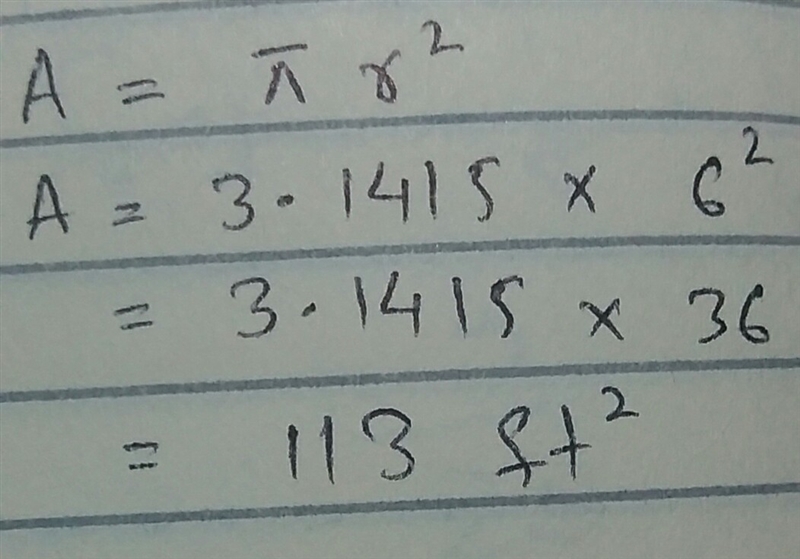 A = π r²
A = 3.1415 × 6²
= 3.1415 × 36
= 113 ft²